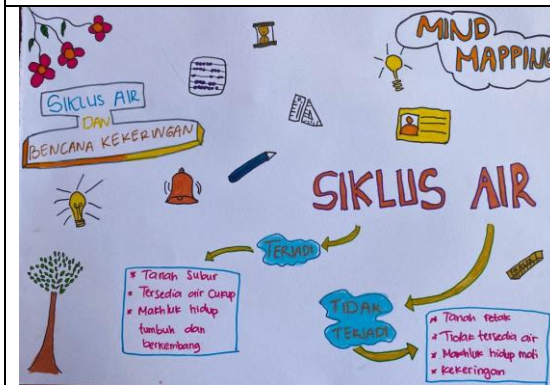 MIND
MAPPING
SIKLUS AIR
DAN
BENCANA KEKERINGAN
SIKLUS AIR
TERJADI
* Tanah Subur
* Tersedia air Cukup
* Makhluk hidup
tumbuh dan
berkembang
TIDAK
TERJADI
* Tanah retak
* Tidak tersedia air
* Makhluk hidup mati
* Kekeringan